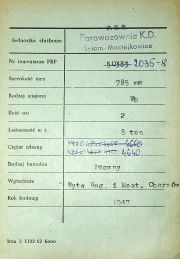 P.K.P.
Jednostka służbowa
Parowozownia K.D.
Bytom-Maciejkowice
Nr inwentarza PKP 50383 2035-S
Szerokość toru 785 mm
Rodzaj wagonu Wb
Ilość osi 2
Ładowność w t. 8 ton
Ciężar własny 4660
4640
Rodzaj hamulca Ręczny
Wytwórnia Wytw. Wag. i Most. Chorzów
Rok budowy 1947